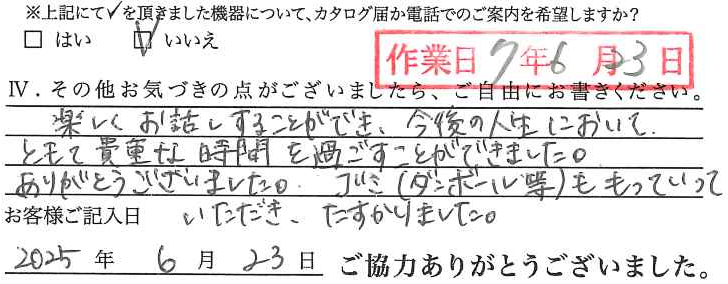 ※上記にて✓を頂きました機器について、カタログ届か電話でのご案内を希望しますか?
□ はい ☑ いいえ
作業日 7年6月23日
Ⅳ．その他お気づきの点がございましたら、ご自由にお書きください。
楽しくお話しすることができ、今後の人生において、
とても貴重な時間を過ごすことができました。
ありがとうございました。ゴミ(ダンボール等)ももっていって
いただき、たすかりました。
お客様ご記入日
2025年6月23日 ご協力ありがとうございました。